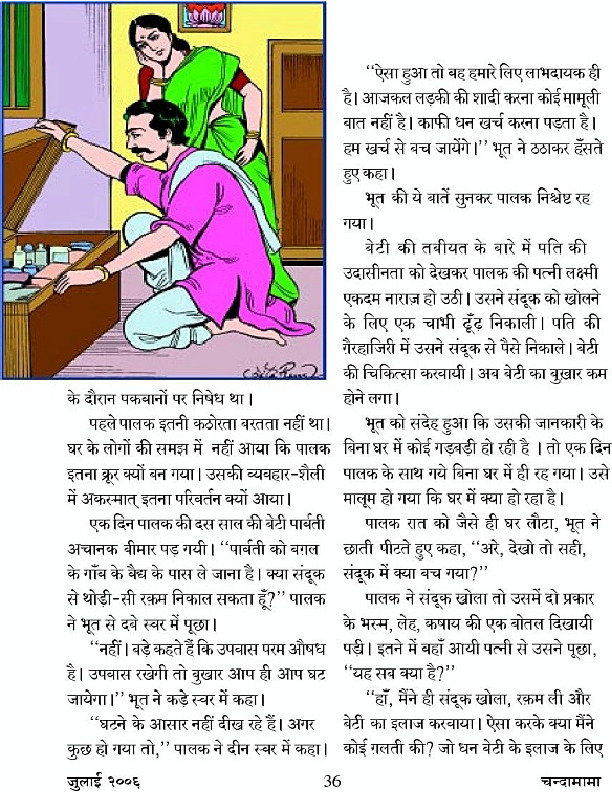 के दौरान पकवानों पर निषेध था।
पहले पालक इतनी कठोरता बरतता नहीं था।
घर के लोगों की समझ में नहीं आया कि पालक
इतना क्रूर क्यों बन गया। उसकी व्यवहार-शैली
में अकस्मात् इतना परिवर्तन क्यों आया।
एक दिन पालक की दस साल की बेटी पार्वती
अचानक बीमार पड़ गयी। “पार्वती को बग़ल
के गाँव के वैद्य के पास ले जाना है। क्या संदूक
से थोड़ी-सी रक़म निकाल सकता हूँ?” पालक
ने भूत से दबे स्वर में पूछा।
“नहीं। बड़े कहते हैं कि उपवास परम औषध
है। उपवास रखेगी तो बुखार आप ही आप घट
जायेगा।” भूत ने कड़े स्वर में कहा।
“घटने के आसार नहीं दीख रहे हैं। अगर
कुछ हो गया तो,” पालक ने दीन स्वर में कहा।
“ऐसा हुआ तो वह हमारे लिए लाभदायक ही
है। आजकल लड़की की शादी करना कोई मामूली
बात नहीं है। काफी धन खर्च करना पड़ता है।
हम खर्च से बच जायेंगे।” भूत ने ठठाकर हँसते
हुए कहा।
भूत की ये बातें सुनकर पालक निश्चेष्ट रह
गया।
बेटी की तबीयत के बारे में पति की
उदासीनता को देखकर पालक की पत्नी लक्ष्मी
एकदम नाराज़ हो उठी। उसने संदूक को खोलने
के लिए एक चाभी ढूँढ़ निकाली। पति की
ग़ैरहाजिरी में उसने संदूक से पैसे निकाले। बेटी
की चिकित्सा करवायी। अब बेटी का बुख़ार कम
होने लगा।
भूत को संदेह हुआ कि उसकी जानकारी के
बिना घर में कोई गड़बड़ी हो रही है । तो एक दिन
पालक के साथ गये बिना घर में ही रह गया। उसे
मालूम हो गया कि घर में क्या हो रहा है।
पालक रात को जैसे ही घर लौटा, भूत ने
छाती पीटते हुए कहा, “अरे, देखो तो सही,
संदूक में क्या बच गया?”
पालक ने संदूक खोला तो उसमें दो प्रकार
के भस्म, लेह, कषाय की एक बोतल दिखायी
पड़ी। इतने में वहाँ आयी पत्नी से उसने पूछा,
“यह सब क्या है?”
“हाँ, मैंने ही संदूक खोला, रक़म ली और
बेटी का इलाज करवाया। ऐसा करके क्या मैंने
कोई ग़लती की? जो धन बेटी के इलाज के लिए
जुलाई २००६
36
चन्दामामा